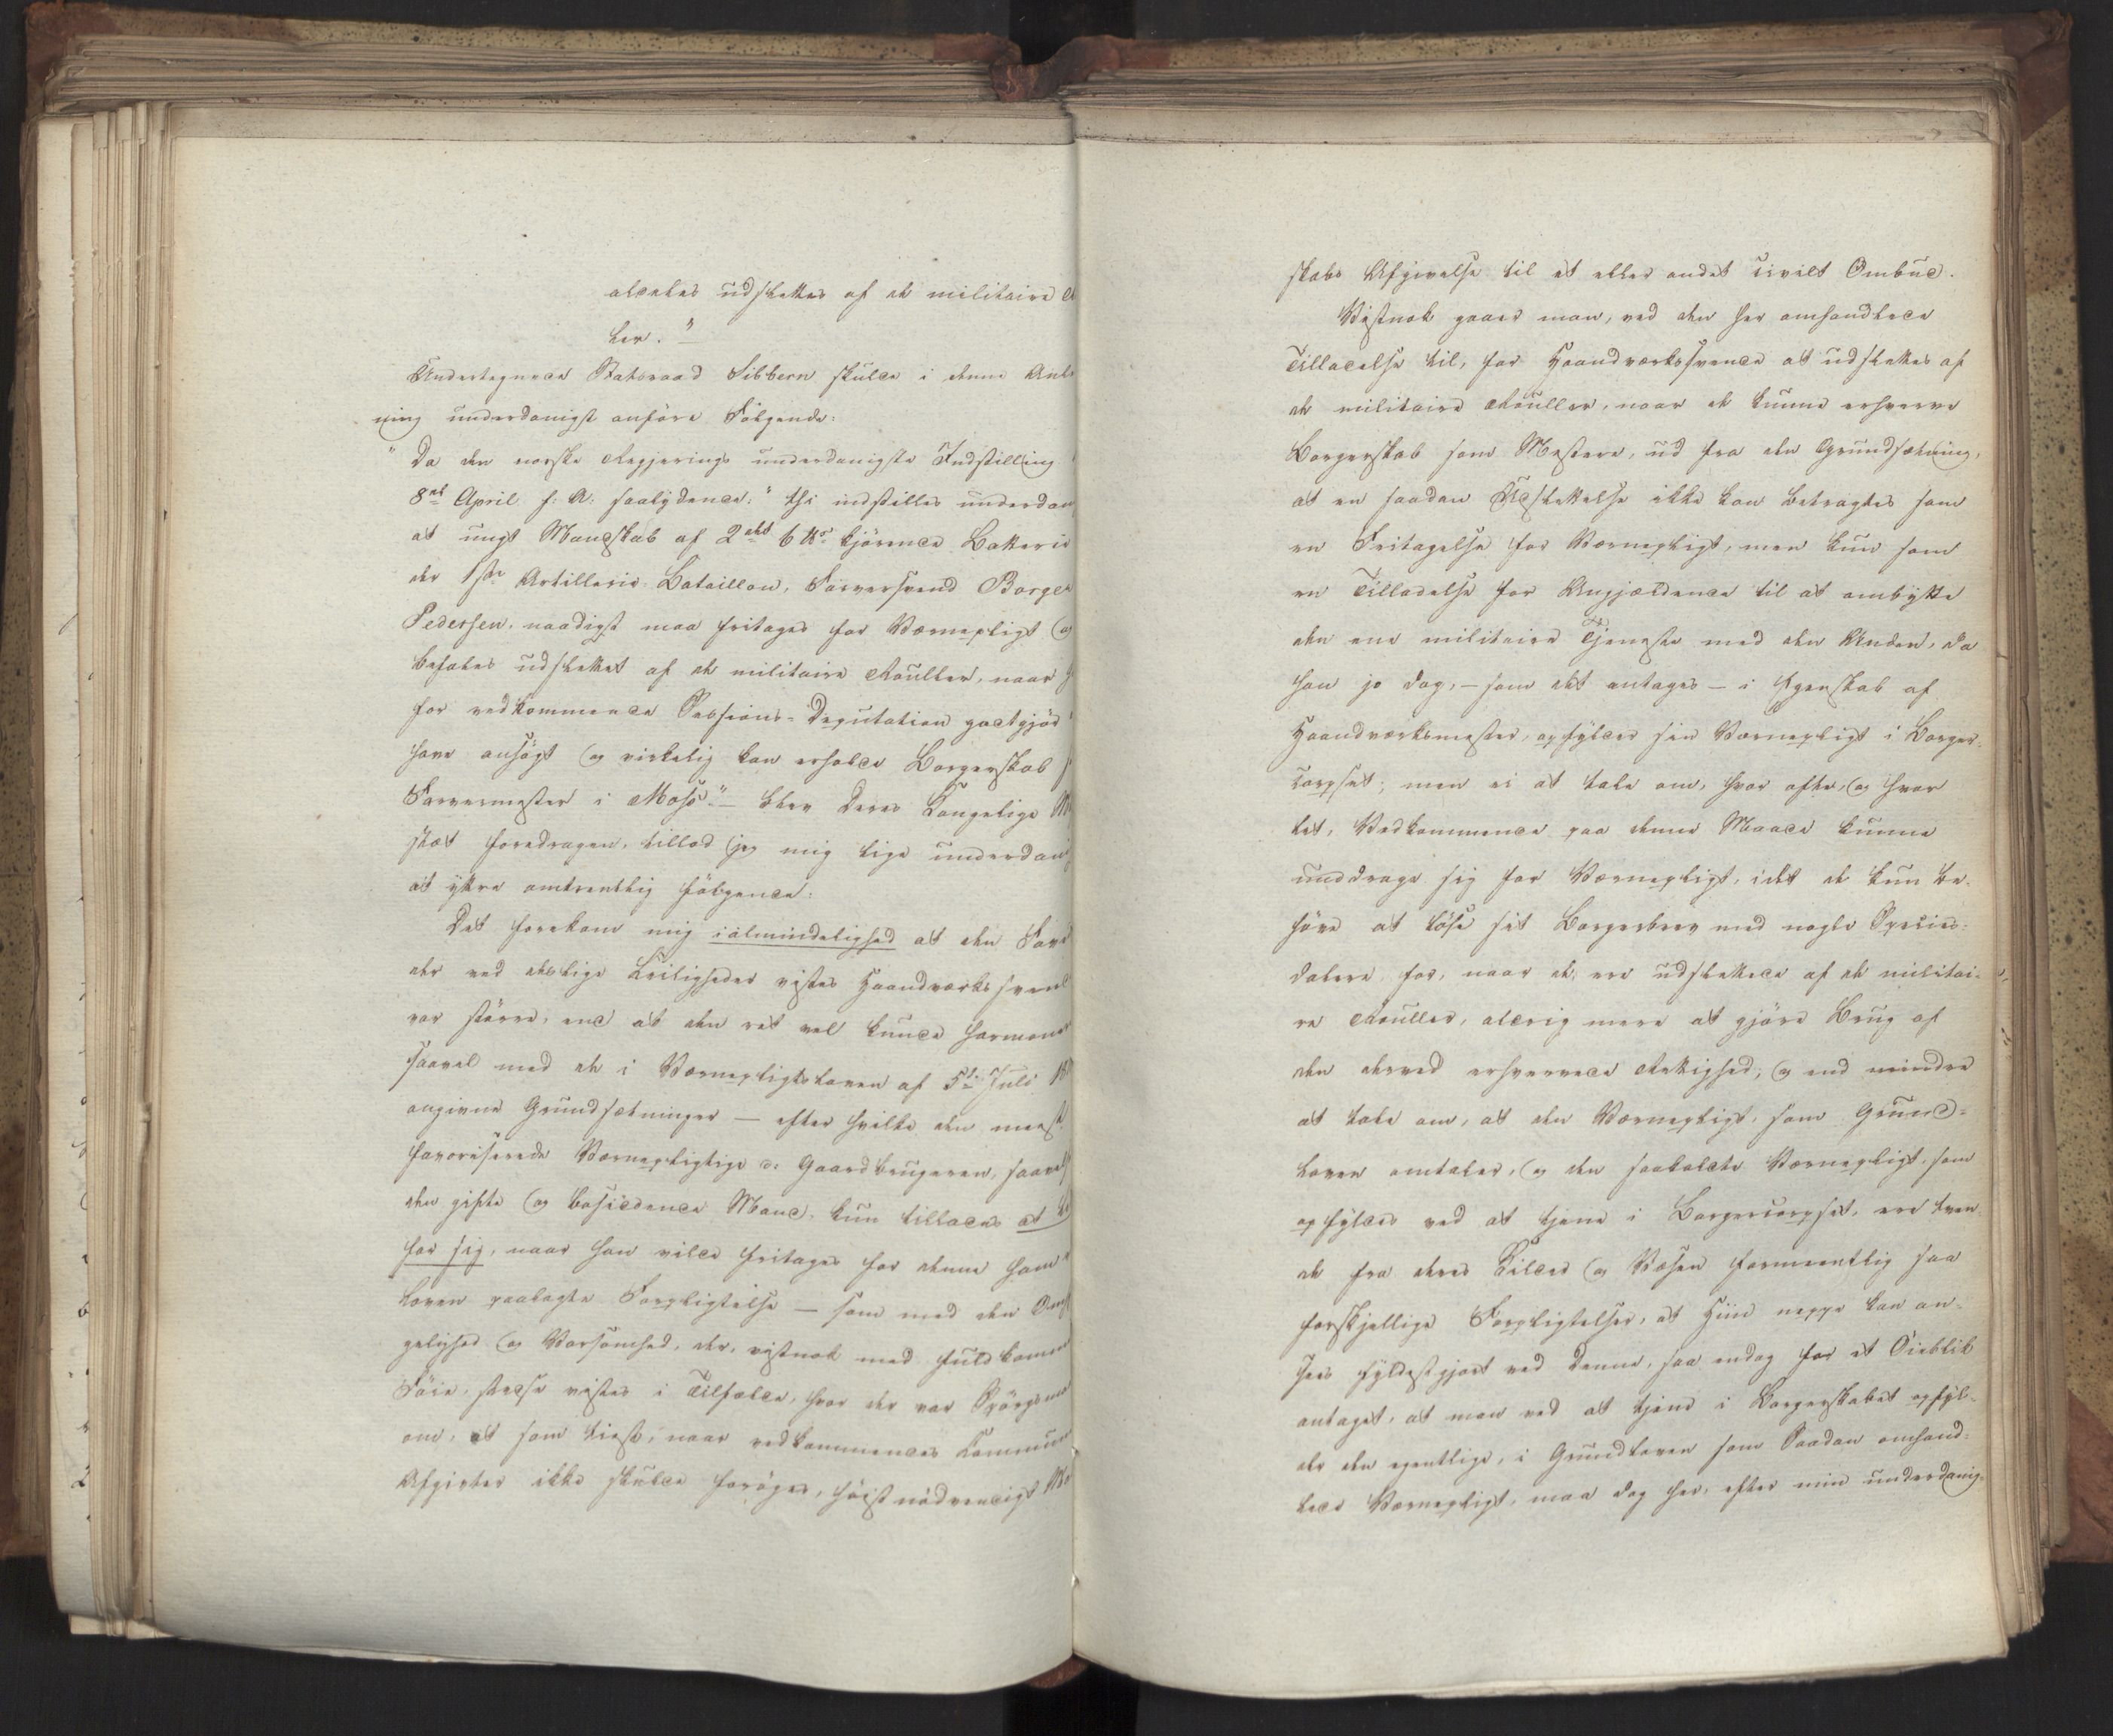 aldeles udslettes af de militaire
ler."
Undertegnede Statsraad Sibbern skulde i denne Anle
ning underdanigst anföre Fölgende:
"Da den norske Regjerings underdanigste Indstilling
8de April f: A: saalydende: "thi indstilles underdan
at ungt Mandskab af 2det 6 ℔s kjörende Batterie
der 1ste Artillerie-Bataillon, Farversvend Borger
Pedersen, naadigst maa fritages for Værnepligt og
befales udslettet af de militaire Rouller, naar
for vedkommende Sessions-Deputation godtgjöd
have ansögt og virkelig kan erholde Borgerskab
Farvermester i Moss."- blev Deres Kongelige
stæt foredragen, tillod jeg mig lige underdan
at yttre omtrentlig fölgende:
Det forekom mig i almindelighed at den Favö
der ved deslige Leiligheder vistes Haandværkssvend
var större, end at den ret vel kunde harmone
saavel med de i Værnepligtsloven af 5te Juli
angivne Grundsætninger — efter hvilke den meest
favoriserede Værnepligtige ɔ: Gaardbrugeren, saavel
den gifte og besiddende Mand, kun tillades at
for sig, naar han vilde fritages for denne ham
Loven paalagte Forpligtelse — som med den
gelighed og Varsomhed, der, vistnok med fuldkommen
Föie, stedse vistes i Tilfælde, hvor der var Spörgsmaa
om, at som tiest, naar vedkommendes Commun
Afgivter ikke skulde foröges, höist nödvendigt
skabs Afgivelse til et eller andet civilt Ombud.
Vistnok gaaer man, ved den her omhandlede
Tilladelse til, for Haandværkssvende at udslettes af
de militaire Rouller, naar de kunne erhverve
Borgerskab som Mestere, ud fra den Grundsætning,
at en saadan Udslettelse ikke kan betragtes som
en Fritagelse for Værnepligt, men kun som
en Tilladelse for Angjældende til at ombytte
den ene militaire Tjeneste med den Anden, da
han jo dog, — som det antages — i Egenskab af
Haandværksmester, opfylder sin Værnepligt i Borger-
corpset; men ei at tale om, hvor ofte, og hvor
let, Vedkommende paa denne Maade kunne
unddrage sig for Værnepligt, idet de kun be-
höve at löse sit Borgerbrev med nogle Species-
dalere for, naar de ere udslettede af de militai-
re Rouller, aldrig mere at gjöre Brug af
den derved erhvervede Rettighed; og end mindre
at tale om, at den Værnepligt, som Grund-
loven omtaler, og den saakaldte Værnepligt, som
opfyldes ved at tjene i Borgercorpset, ere tven
de fra deres Kilder og Væsen formeentlig saa
forskjellige Forpligtelser, at Hiin neppe kan an-
sees fyldestgjort ved Denne, saa endog for et Öieblik
antaget, at man ved at tjene i Borgerskabet opfyl-
der den egentlige, i Grundloven som Saadan omhand-
lede Værnepligt, maa dog her, efter min underdanig-